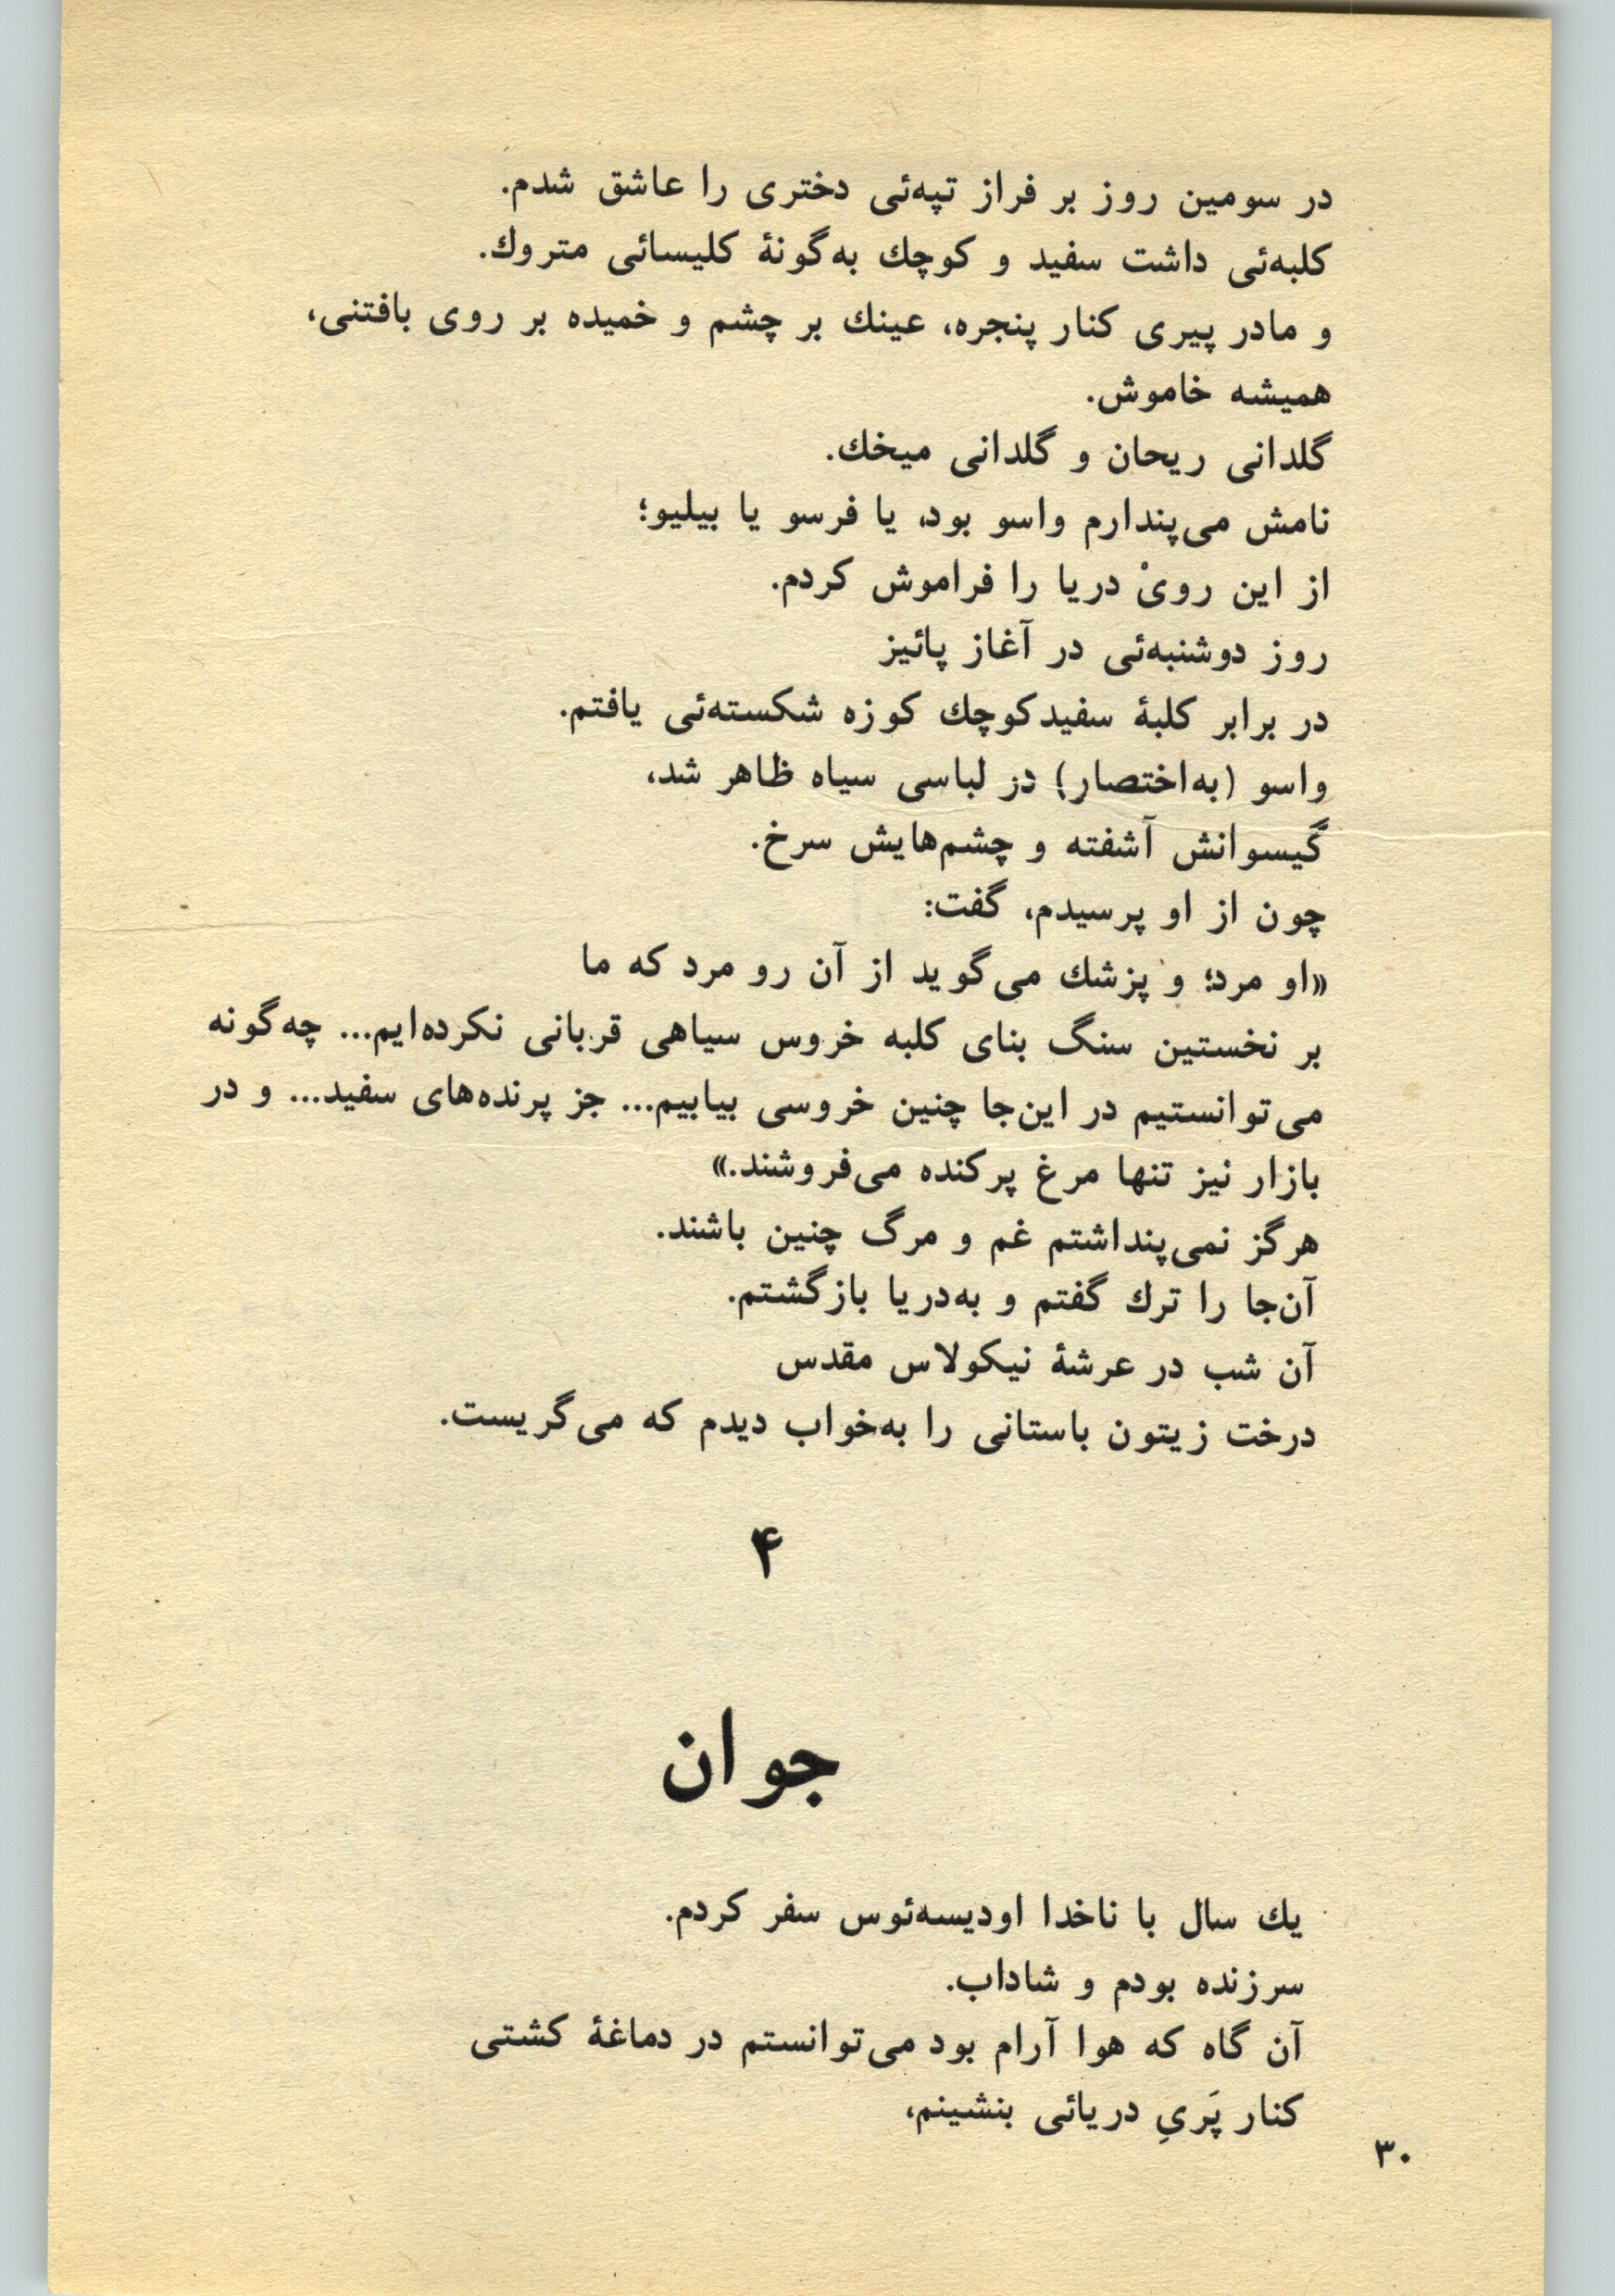 در سومین روز بر فراز تپه‌ئی دختری را عاشق شدم.
کلبه‌ئی داشت سفید و کوچك به‌گونهٔ کلیسائی متروك.
و مادر پیری کنار پنجره، عینك بر چشم و خمیده بر روی بافتنی،
همیشه خاموش.
گلدانی ریحان و گلدانی میخك.
نامش می‌پندارم واسو بود، یا فرسو یا بیلیو؛
از این رویْ دریا را فراموش کردم.
روز دوشنبه‌ئی در آغاز پائیز
در برابر کلبهٔ سفیدکوچك کوزه شکسته‌ئی یافتم.
واسو (به‌اختصار) در لباسی سیاه ظاهر شد،
گیسوانش آشفته و چشم‌هایش سرخ.
چون از او پرسیدم، گفت:
«او مرد؛ و پزشك می‌گوید از آن رو مرد که ما
بر نخستین سنگ بنای کلبه خروس سیاهی قربانی نکرده‌ایم... چه‌گونه
می‌توانستیم در این‌جا چنین خروسی بیابیم... جز پرنده‌های سفید... و در
بازار نیز تنها مرغ پرکنده می‌فروشند.»
هرگز نمی‌پنداشتم غم و مرگ چنین باشند.
آن‌جا را ترك گفتم و به‌دریا بازگشتم.
آن شب در عرشهٔ نیکولاس مقدس
درخت زیتون باستانی را به‌خواب دیدم که می‌گریست.
۴
جوان
یك سال با ناخدا اودیسه‌ئوس سفر کردم.
سرزنده بودم و شاداب.
آن گاه که هوا آرام بود می‌توانستم در دماغهٔ کشتی
کنار پَریِ دریائی بنشینم،
۳۰